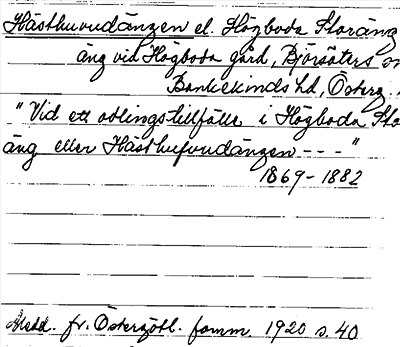 Hästhuvudängen el. Högboda Storäng
äng vid Högboda gård, Björsäters
Bankekinds hd, Österg.
"Vid ett odlingstillfälle i Högboda Sto
äng eller Hästhufvudängen - - - "
1869-1882
Medd. fr. Östergötl. fornm. 1920 s. 40